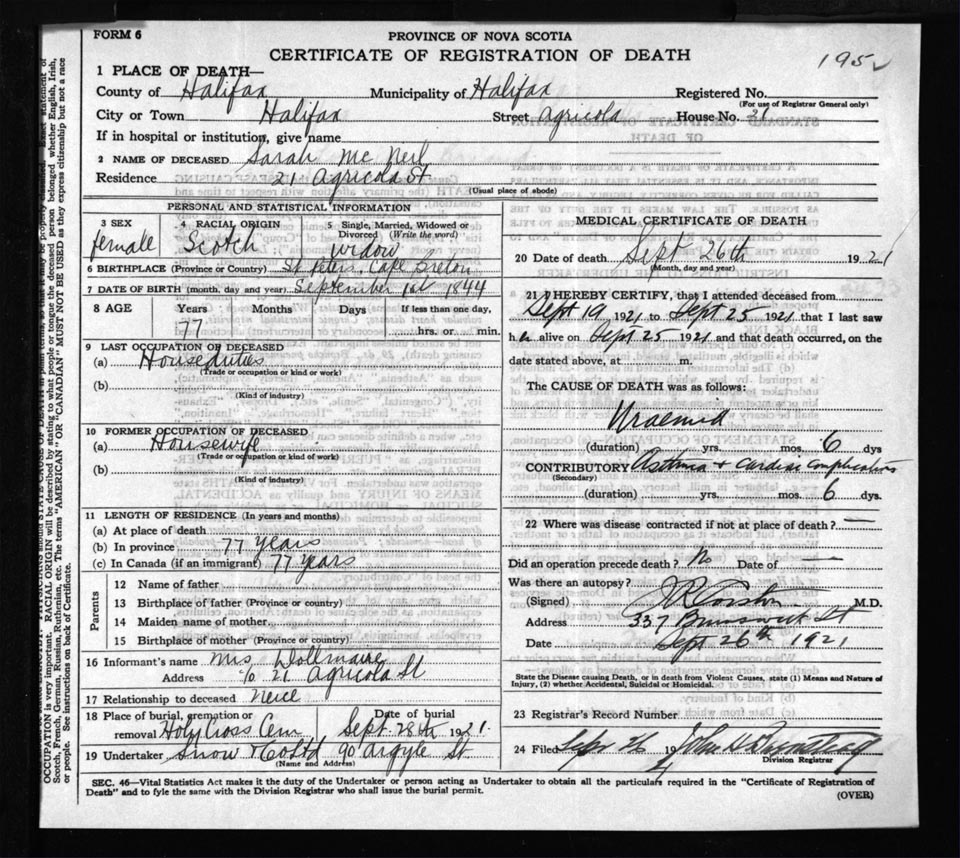 FORM 6
PROVINCE OF NOVA SCOTIA
CERTIFICATE OF REGISTRATION OF DEATH
195
1 PLACE OF DEATH—
County of Halifax Municipality of Halifax Registered No.
(For use of Registrar General only)
City or Town Halifax Street Agricola House No. 21
If in hospital or institution, give name
2 NAME OF DECEASED Sarah Mc Neil
Residence 21 Agricola St
(Usual place of abode)
PERSONAL AND STATISTICAL INFORMATION
3 SEX
female
4 RACIAL ORIGIN
Scotch
5 Single, Married, Widowed or Divorced (Write the word)
widow
6 BIRTHPLACE (Province or Country) St Peters, Cape Breton
7 DATE OF BIRTH (month, day and year) September 1st 1844
8 AGE Years Months Days If less than one day,
77 hrs. or min.
9 LAST OCCUPATION OF DECEASED
(a) House duties
(Trade or occupation or kind of work)
(b)
(Kind of industry)
10 FORMER OCCUPATION OF DECEASED
(a) Housewife
(Trade or occupation or kind of work)
(b)
(Kind of industry)
11 LENGTH OF RESIDENCE (In years and months)
(a) At place of death
(b) In province 77 years
(c) In Canada (if an immigrant) 77 years
Parents
12 Name of father
13 Birthplace of father (Province or country)
14 Maiden name of mother
15 Birthplace of mother (Province or country)
16 Informant's name Mrs
Address c/o 21 Agricola St
17 Relationship to deceased Neice
18 Place of burial, cremation or removal Holy Cross Cem Date of burial Sept 28th 1921
19 Undertaker Snow & Co Ltd 90 Argyle St.
(Name and Address)
MEDICAL CERTIFICATE OF DEATH
20 Date of death Sept 26th 1921
(Month, day and year)
21 I HEREBY CERTIFY, that I attended deceased from
Sept 19 1921 to Sept 25 1921 that I last saw
her alive on Sept 25 1921 and that death occurred, on the
date stated above, at m.
The CAUSE OF DEATH was as follows:
Uraemia
(duration) yrs. mos. 6 dys
CONTRIBUTORY Asthma + Cardiac Complications
(Secondary)
(duration) yrs. mos. 6 dys.
22 Where was disease contracted if not at place of death? —
Did an operation precede death? No Date of —
Was there an autopsy?
(Signed) M.D.
Address 337 Brunswick St
Date Sept 26th 1921
State the Disease causing Death, or in death from Violent Causes, state (1) Means and Nature of
Injury, (2) whether Accidental, Suicidal or Homicidal.
23 Registrar's Record Number
24 Filed Sept 26 19
Division Registrar
SEC. 46—Vital Statistics Act makes it the duty of the Undertaker or person acting as Undertaker to obtain all the particulars required in the "Certificate of Registration of
Death" and to fyle the same with the Division Registrar who shall issue the burial permit.
(OVER)
OCCUPATION is very important. RACIAL ORIGIN will be described by stating to what people or tongue the deceased person belonged whether English, Irish,
Scotch, French, German, Russian, Ruthenian, etc. The terms "AMERICAN" OR "CANADIAN" MUST NOT BE USED as they express citizenship but not a race
or people. See instructions on back of Certificate.